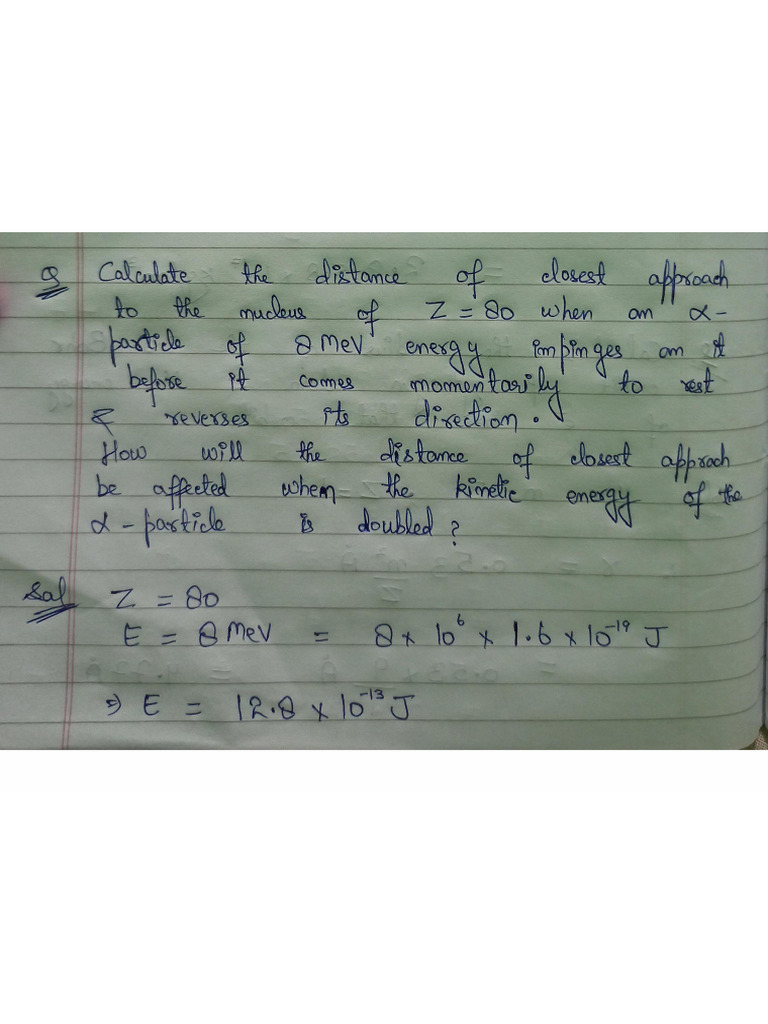 Q Calculate the distance of closest approach
to the nucleus of Z = 80 when an α-
particle of 8 MeV energy impinges on it
before it comes momentarily to rest
& reverses its direction.
How will the distance of closest apprach
be affected when the kinetic energy of the
α-particle is doubled?
Sol Z = 80
E = 8 MeV = 8 × 10⁶ × 1.6 × 10⁻¹⁹ J
⇒ E = 12.8 × 10⁻¹³ J